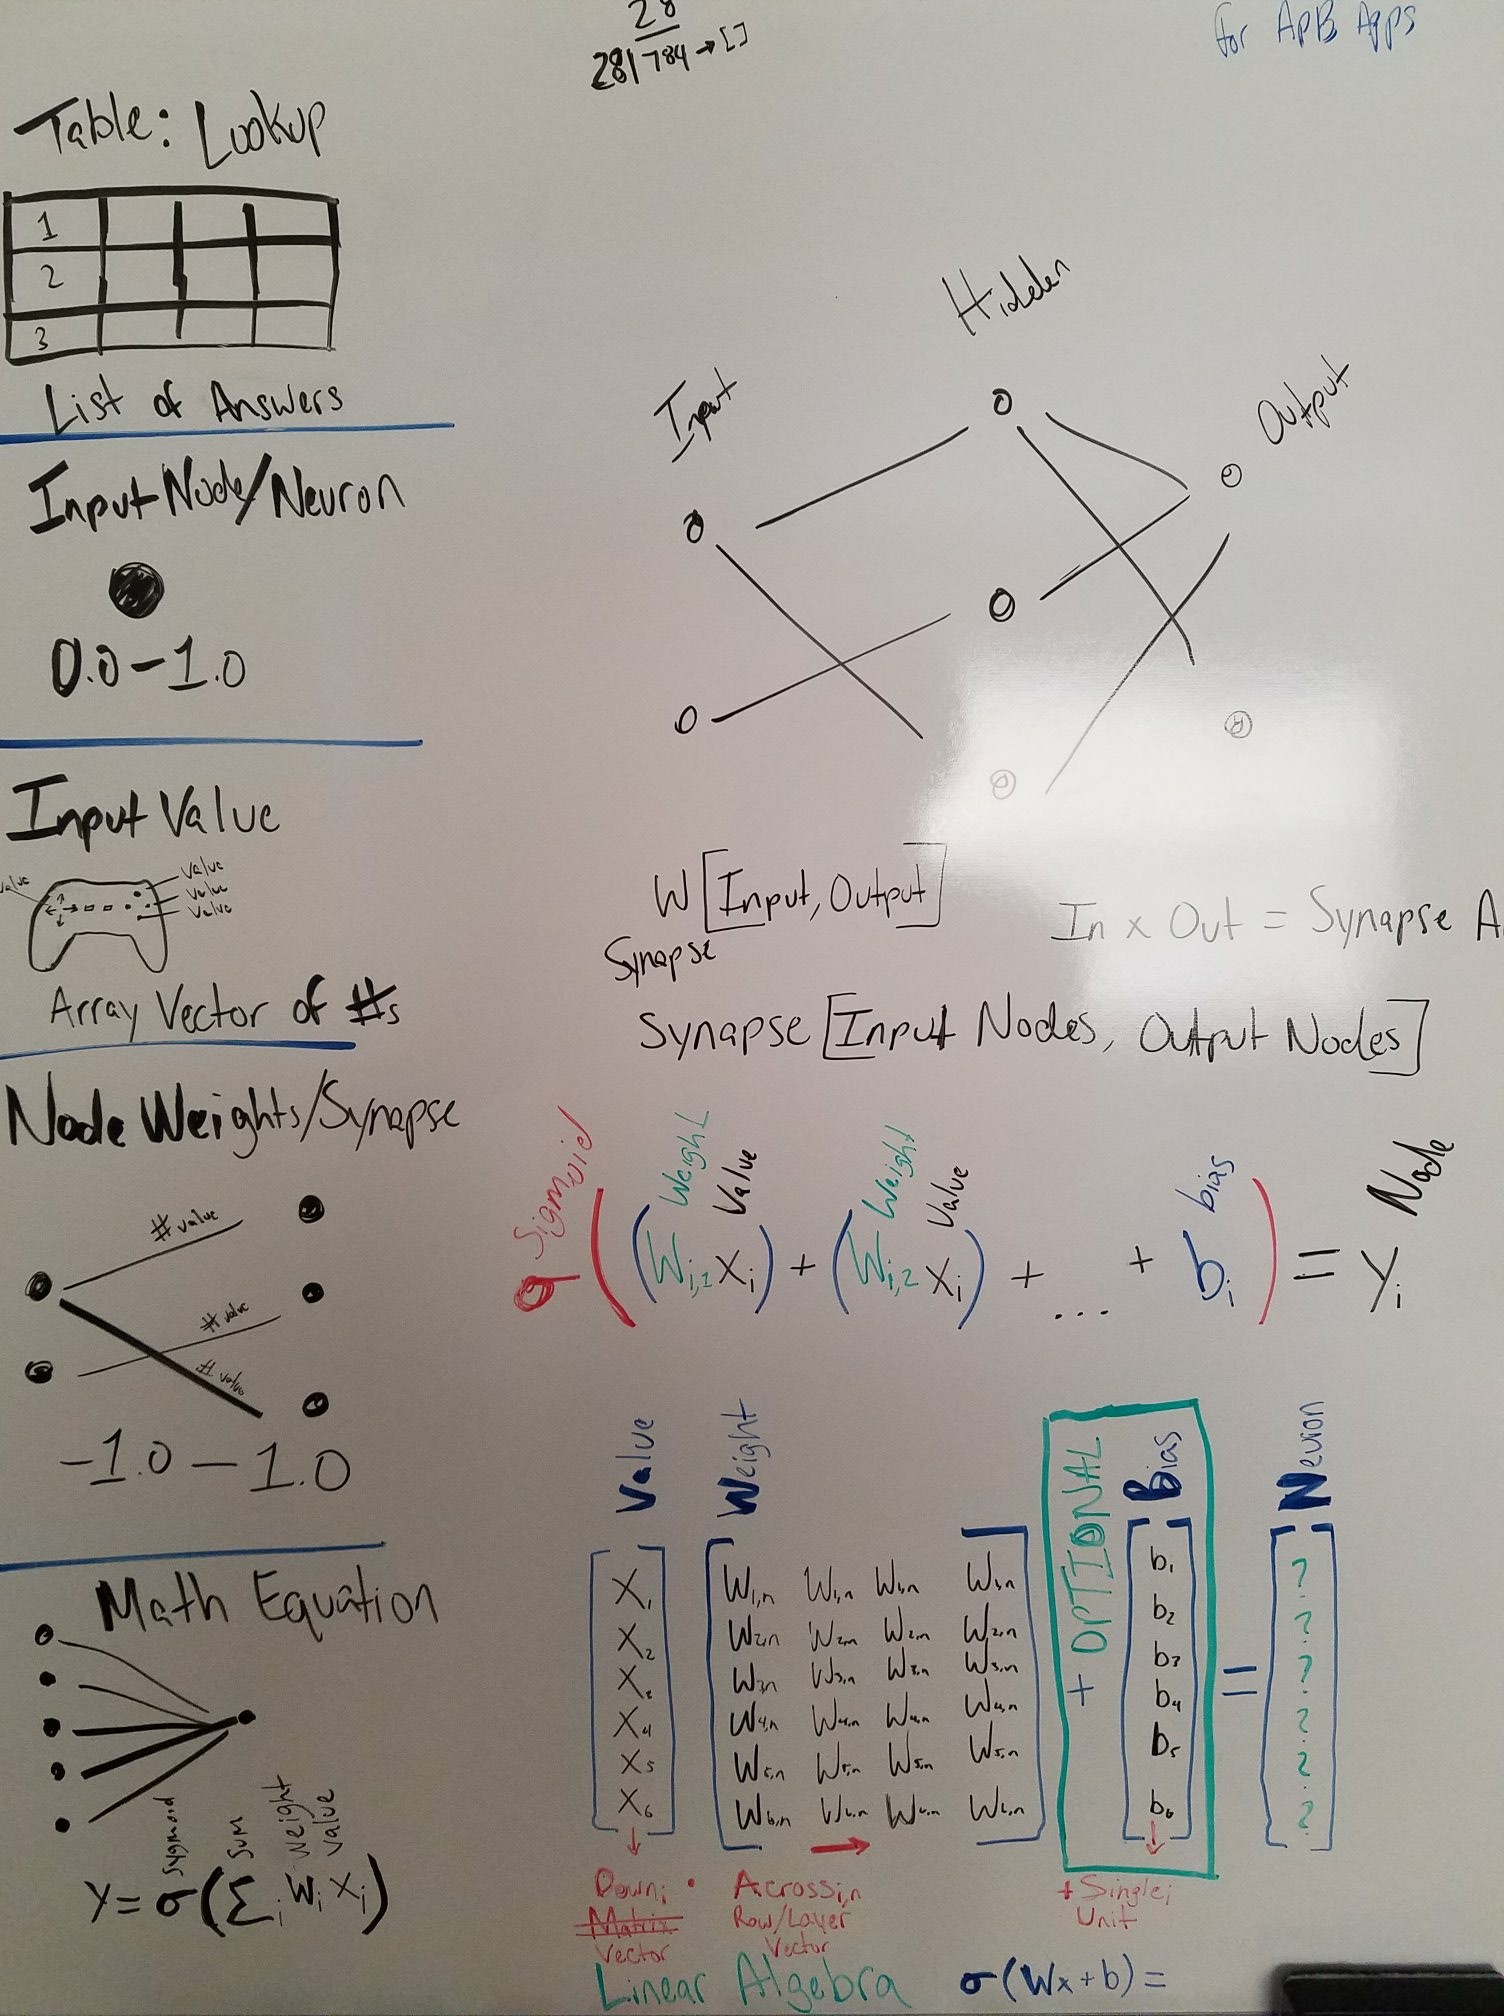 28
28 784 → []
for APB Apps
Table: Lookup
1
2
3
List of Answers
Input Node/Neuron
0.0 – 1.0
Input Value
Value
Value
Value
Value
Array Vector of #s
Node Weights/Synapse
# value
# value
# value
-1.0 – 1.0
Math Equation
Sygmoid
Sum
Weight
Value
Y = σ(Σi Wi Xi)
Input
Hidden
Output
W[Input, Output]
Synapse
In x Out = Synapse
Synapse [Input Nodes, Output Nodes]
Sigmoid
Weight
Value
Weight
Value
bias
Node
σ((Wi,1 Xi) + (Wi,2 Xi) + ... + bi) = Yi
Value
Weight
+ OPTIONAL
Bias
Neuron
X1 W1,n W1,n W1,n W1,n b1 ?
X2 W2,n W2,n W2,n W2,n b2 ?
X3 W3,n W3,n W3,n W3,n b3 ?
X4 W4,n W4,n W4,n W4,n b4 = ?
X5 W5,n W5,n W5,n W5,n b5 ?
X6 W6,n W6,n W6,n W6,n b6 ?
Downi • Acrossi,n + Singlei
Matrix Row/Layer Unit
Vector Vector
Linear Algebra σ(Wx+b) =